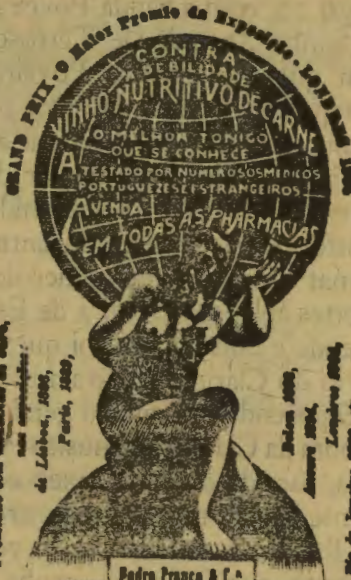 GRAND PRIX - O Maior Premio da Exposição - LONDRES
CONTRA
A DEBILIDADE
VINHO NUTRITIVO DE CARNE
O MELHOR TONICO
QUE SE CONHECE
ATESTADO POR NUMEROSOS MEDICOS
PORTUGUEZES E ESTRANGEIROS
AVENDA
EM TODAS AS PHARMACIAS
nas exposições:
de Lisboa, 1888,
Paris, 1889,
1904,
Londres 1904,
Pedro Franco & C.ª